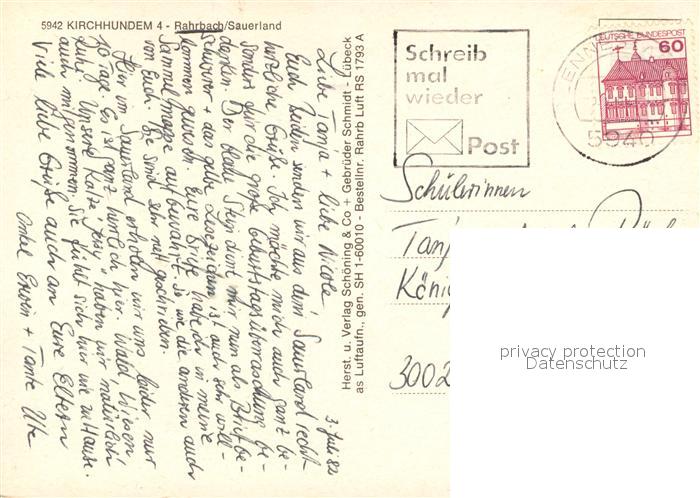 5942 KIRCHHUNDEM 4 - Rahrbach/Sauerland
3. Juli 82
Liebe Tanja + liebe Nicole
Euch beiden senden wir aus dem Sauerland recht
herzliche Grüße. Ich möchte mich auch ganz be-
sonders für die große Geburtstagsüberraschung be-
danken. Der blaue Stein dient mir nun als Briefbe-
schwerer + das gelbe Lesezeichen ist auch sehr will-
kommen gewesen. Eure Briefe habe ich in meine
Sammelmappe aufbewahrt. So wie die anderen auch
von Euch. Sie sind sehr nett geschrieben.
Hier im Sauerland erholen wir uns leider nur
10 Tage. Es ist ganz herrlich hier. Wald, Wiesen
Ruhe. Unsere Katze "Jenny" haben wir natürlich
auch mitgenommen. Sie fühlt sich hier wie zu Hause.
Viele liebe Grüße auch an Eure Eltern
Onkel Erwin + Tante Ute
Herst. u. Verlag Schöning & Co + Gebrüder Schmidt - Lübeck
als Luftaufn., gen. SH 1-60010 - Bestellnr. Rahrb Luft RS 1793 A
Schreib
mal
wieder
Post
DEUTSCHE BUNDESPOST
60
LENNE
5940
Schülerinnen
Tanj
König
3002
privacy protection
Datenschutz